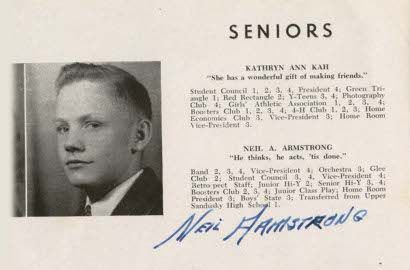 SENIORS
KATHRYN ANN KAH
"She has a wonderful gift of making friends."
Student Council 1, 2, 3, 4, President 4; Green Tri-
angle 1; Red Rectangle 2; Y-Teens 3, 4; Photography
Club 4; Girls' Athletic Association 1, 2, 3, 4;
Boosters Club 1, 2, 3, 4, 4-H Club 1, 2, 3; Home
Economics Club 3, Vice-President 3; Home Room
Vice-President 3.
NEIL A. ARMSTRONG
"He thinks, he acts, 'tis done."
Band 2, 3, 4, Vice-President 4; Orchestra 3; Glee
Club 2; Student Council 3, 4, Vice-President 4;
Retrospect Staff; Junior Hi-Y 2; Senior Hi-Y 3, 4;
Boosters Club 2, 3, 4; Junior Class Play; Home Room
President 3; Boys' State 3; Transferred from Upper
Sandusky High School 1.
NEIL ARMSTRONG